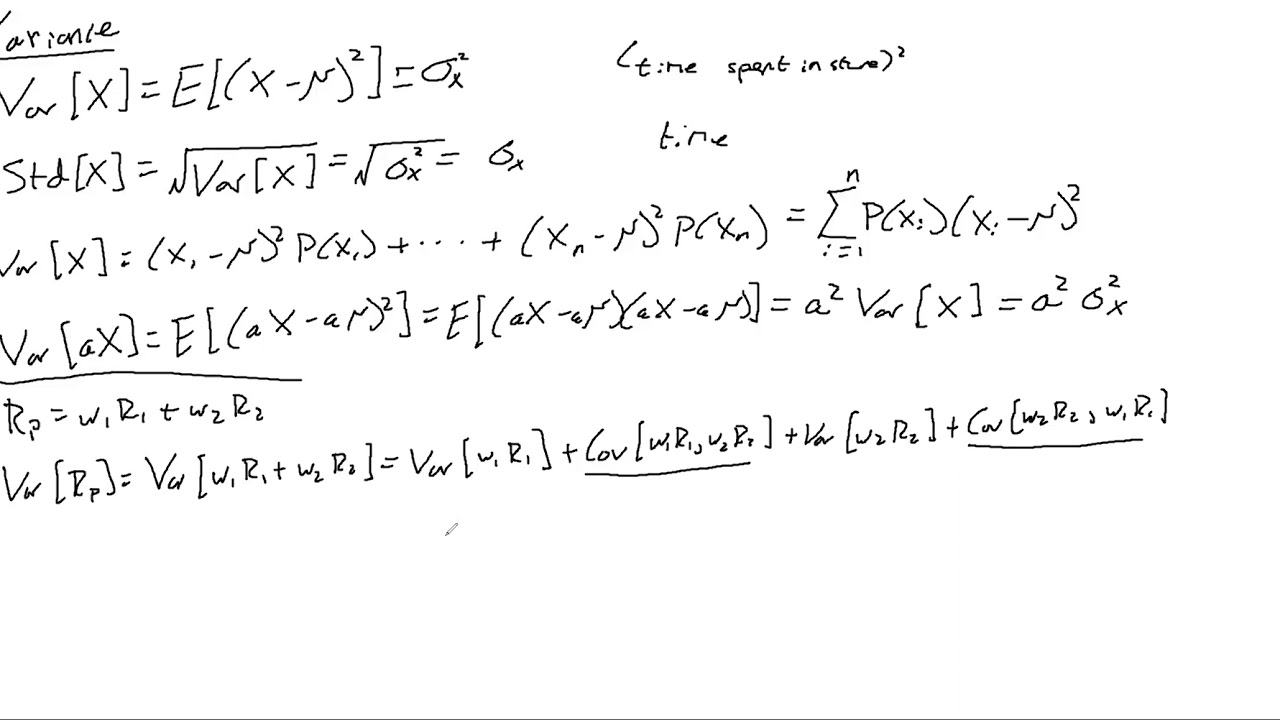 Variance
Var[X] = E[(X-μ)²] = σₓ²
(time spent in store)²
time
Std[X] = √Var[X] = √σₓ² = σₓ
Var[X] = (X₁-μ)² P(X₁) + ··· + (Xₙ-μ)² P(Xₙ) = Σᵢ₌₁ⁿ P(Xᵢ)(Xᵢ-μ)²
Var[aX] = E[(aX-aμ)²] = E[(aX-aμ)(aX-aμ)] = a² Var[X] = a² σₓ²
Rₚ = w₁R₁ + w₂R₂
Var[Rₚ] = Var[w₁R₁ + w₂R₂] = Var[w₁R₁] + Cov[w₁R₁, w₂R₂] + Var[w₂R₂] + Cov[w₂R₂, w₁R₁]